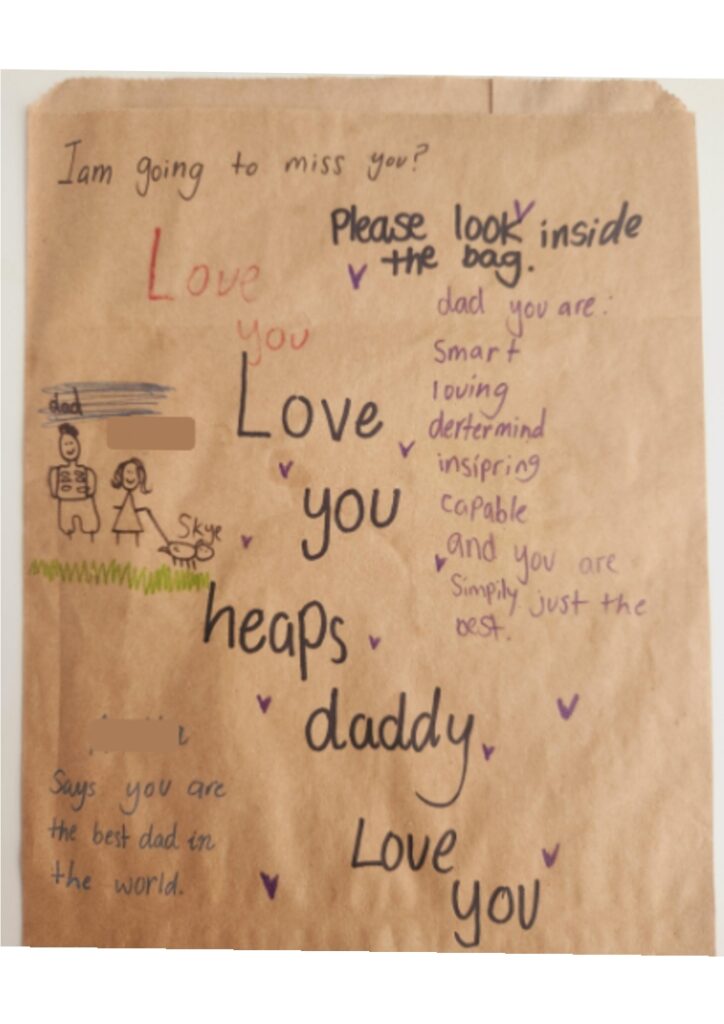 I am going to miss you?
Please look inside
the bag.
Love
you
dad you are:
Smart
loving
dertermind
insipring
capable
and you are
Simpily just the
best.
dad
Skye
Love
you
heaps
daddy
Love
you
Says you are
the best dad in
the world.